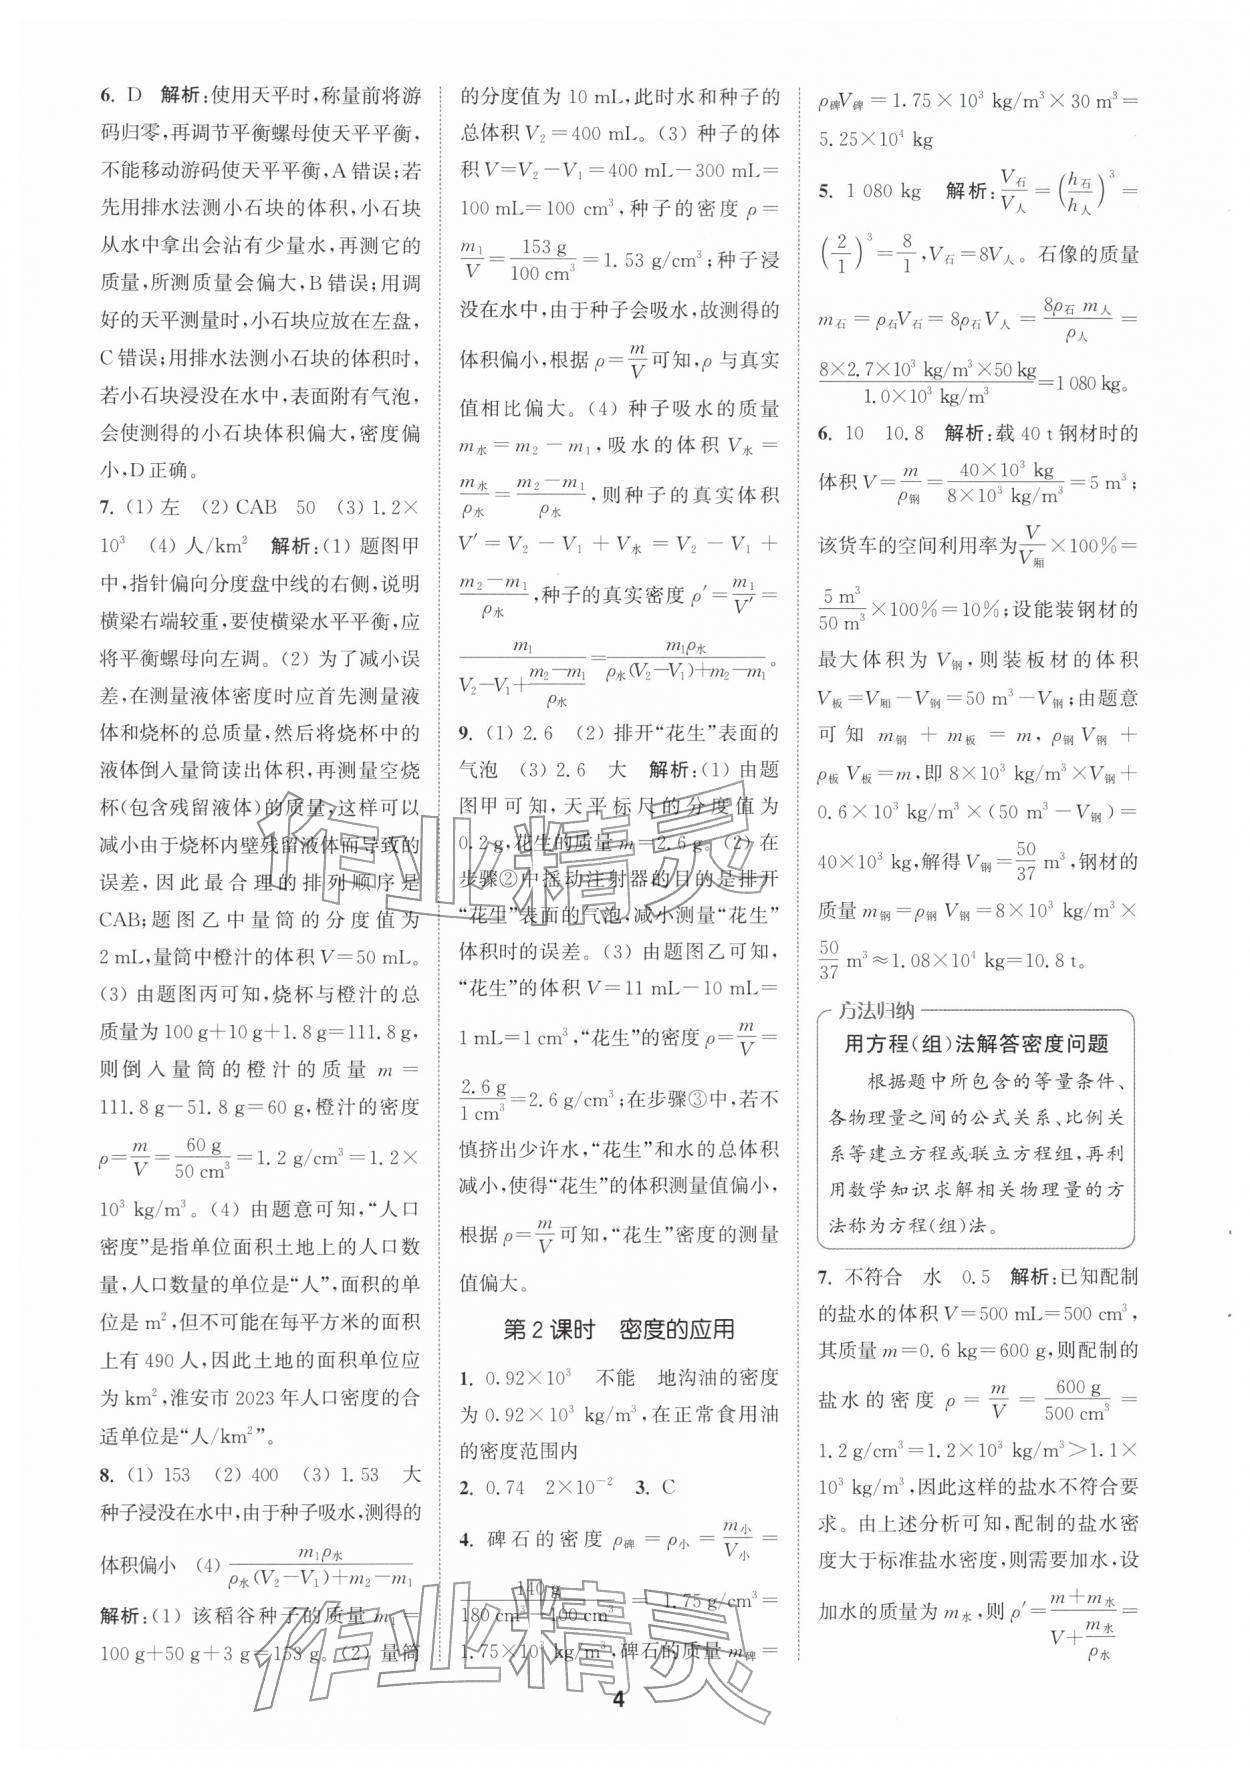 6. D 解析:使用天平时,称量前将游
码归零,再调节平衡螺母使天平平衡,
不能移动游码使天平平衡,A错误;若
先用排水法测小石块的体积,小石块
从水中拿出会沾有少量水,再测它的
质量,所测质量会偏大,B错误;用调
好的天平测量时,小石块应放在左盘,
C错误;用排水法测小石块的体积时,
若小石块浸没在水中,表面附有气泡,
会使测得的小石块体积偏大,密度偏
小,D正确。
7. (1) 左 (2) CAB 50 (3) 1.2×
10³ (4) 人/km² 解析:(1) 题图甲
中,指针偏向分度盘中线的右侧,说明
横梁右端较重,要使横梁水平平衡,应
将平衡螺母向左调。(2) 为了减小误
差,在测量液体密度时应首先测量液
体和烧杯的总质量,然后将烧杯中的
液体倒入量筒读出体积,再测量空烧
杯(包含残留液体)的质量,这样可以
减小由于烧杯内壁残留液体而导致的
误差,因此最合理的排列顺序是
CAB;题图乙中量筒的分度值为
2 mL,量筒中橙汁的体积V=50 mL。
(3) 由题图丙可知,烧杯与橙汁的总
质量为100 g+10 g+1.8 g=111.8 g,
则倒入量筒的橙汁的质量 m=
111.8 g-51.8 g=60 g,橙汁的密度
ρ=m/V=60 g/50 cm³=1.2 g/cm³=1.2×
10³ kg/m³。(4) 由题意可知,“人口
密度”是指单位面积土地上的人口数
量,人口数量的单位是“人”,面积的单
位是 m²,但不可能在每平方米的面积
上有490人,因此土地的面积单位应
为 km²,淮安市2023年人口密度的合
适单位是“人/km²”。
8. (1) 153 (2) 400 (3) 1.53 大
种子浸没在水中,由于种子吸水,测得的
体积偏小 (4) m₁ρ水/(ρ水(V₂-V₁)+m₂-m₁)
解析:(1) 该稻谷种子的质量 m₁=
100 g+50 g+3 g=153 g。(2) 量筒
的分度值为 10 mL,此时水和种子的
总体积V₂=400 mL。(3) 种子的体
积V=V₂-V₁=400 mL-300 mL=
100 mL=100 cm³,种子的密度 ρ=
m₁/V=153 g/100 cm³=1.53 g/cm³;种子浸
没在水中,由于种子会吸水,故测得的
体积偏小,根据 ρ=m/V可知,ρ 与真实
值相比偏大。(4) 种子吸水的质量
m水=m₂-m₁,吸水的体积 V水=
m水/ρ水=(m₂-m₁)/ρ水,则种子的真实体积
V′=V₂-V₁+V水=V₂-V₁+
(m₂-m₁)/ρ水,种子的真实密度 ρ′=m₁/V′=
m₁/(V₂-V₁+(m₂-m₁)/ρ水)=m₁ρ水/(ρ水(V₂-V₁)+m₂-m₁)。
9. (1) 2.6 (2) 排开“花生”表面的
气泡 (3) 2.6 大 解析:(1) 由题
图甲可知,天平标尺的分度值为
0.2 g,花生的质量 m=2.6 g。(2) 在
步骤②中摇动注射器的目的是排开
“花生”表面的气泡,减小测量“花生”
体积时的误差。(3) 由题图乙可知,
“花生”的体积V=11 mL-10 mL=
1 mL=1 cm³,“花生”的密度 ρ=m/V=
2.6 g/1 cm³=2.6 g/cm³;在步骤③中,若不
慎挤出少许水,“花生”和水的总体积
减小,使得“花生”的体积测量值偏小,
根据 ρ=m/V可知,“花生”密度的测量
值偏大。
第2课时 密度的应用
1. 0.92×10³ 不能 地沟油的密度
为0.92×10³ kg/m³,在正常食用油
的密度范围内
2. 0.74 2×10⁻² 3. C
4. 碑石的密度 ρ碑=ρ小=m小/V小=
140 g/(180 cm³-100 cm³)=1.75 g/cm³=
1.75×10³ kg/m³,碑石的质量 m碑=
ρ碑V碑=1.75×10³ kg/m³×30 m³=
5.25×10⁴ kg
5. 1 080 kg 解析:V石/V人=(h石/h人)³=
(2/1)³=8/1,V石=8V人。石像的质量
m石=ρ石V石=8ρ石V人=8ρ石 m人/ρ人=
8×2.7×10³ kg/m³×50 kg/1.0×10³ kg/m³=1 080 kg。
6. 10 10.8 解析:载40 t钢材时的
体积V=m/ρ钢=40×10³ kg/8×10³ kg/m³=5 m³;
该货车的空间利用率为V/V厢×100%=
5 m³/50 m³×100%=10%;设能装钢材的
最大体积为 V钢,则装板材的体积
V板=V厢-V钢=50 m³-V钢;由题意
可知 m钢+m板=m,ρ钢V钢+
ρ板V板=m,即8×10³ kg/m³×V钢+
0.6×10³ kg/m³×(50 m³-V钢)=
40×10³ kg,解得V钢=50/37 m³,钢材的
质量 m钢=ρ钢V钢=8×10³ kg/m³×
50/37 m³≈1.08×10⁴ kg=10.8 t。
方法归纳
用方程(组)法解答密度问题
根据题中所包含的等量条件、
各物理量之间的公式关系、比例关
系等建立方程或联立方程组,再利
用数学知识求解相关物理量的方
法称为方程(组)法。
7. 不符合 水 0.5 解析:已知配制
的盐水的体积V=500 mL=500 cm³,
其质量 m=0.6 kg=600 g,则配制的
盐水的密度 ρ=m/V=600 g/500 cm³=
1.2 g/cm³=1.2×10³ kg/m³>1.1×
10³ kg/m³,因此这样的盐水不符合要
求。由上述分析可知,配制的盐水密
度大于标准盐水密度,则需要加水,设
加水的质量为 m水,则 ρ′=(m+m水)/(V+m水/ρ水)=
4
作业精灵
作业精灵